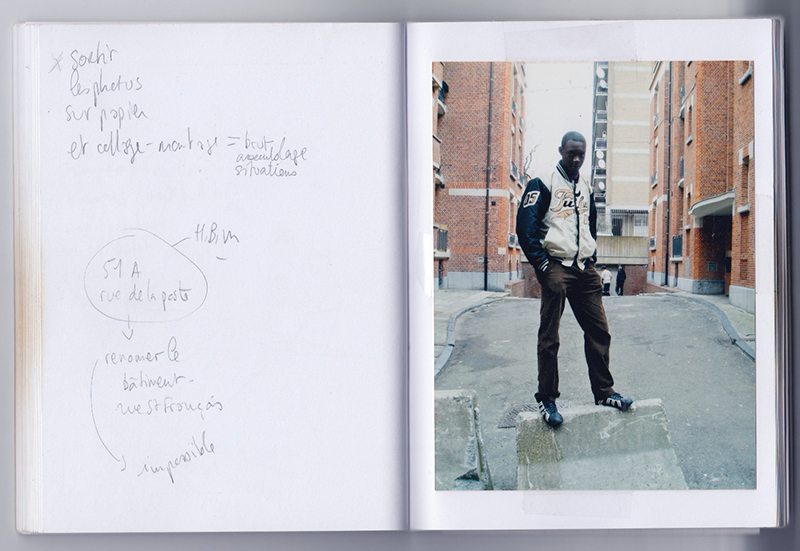 * sortir
les photos
sur papier
et collage-montage = brut
assemblage
situations
51 A
rue de la poste
renomer le
bâtiment -
rue St François
impossible
09